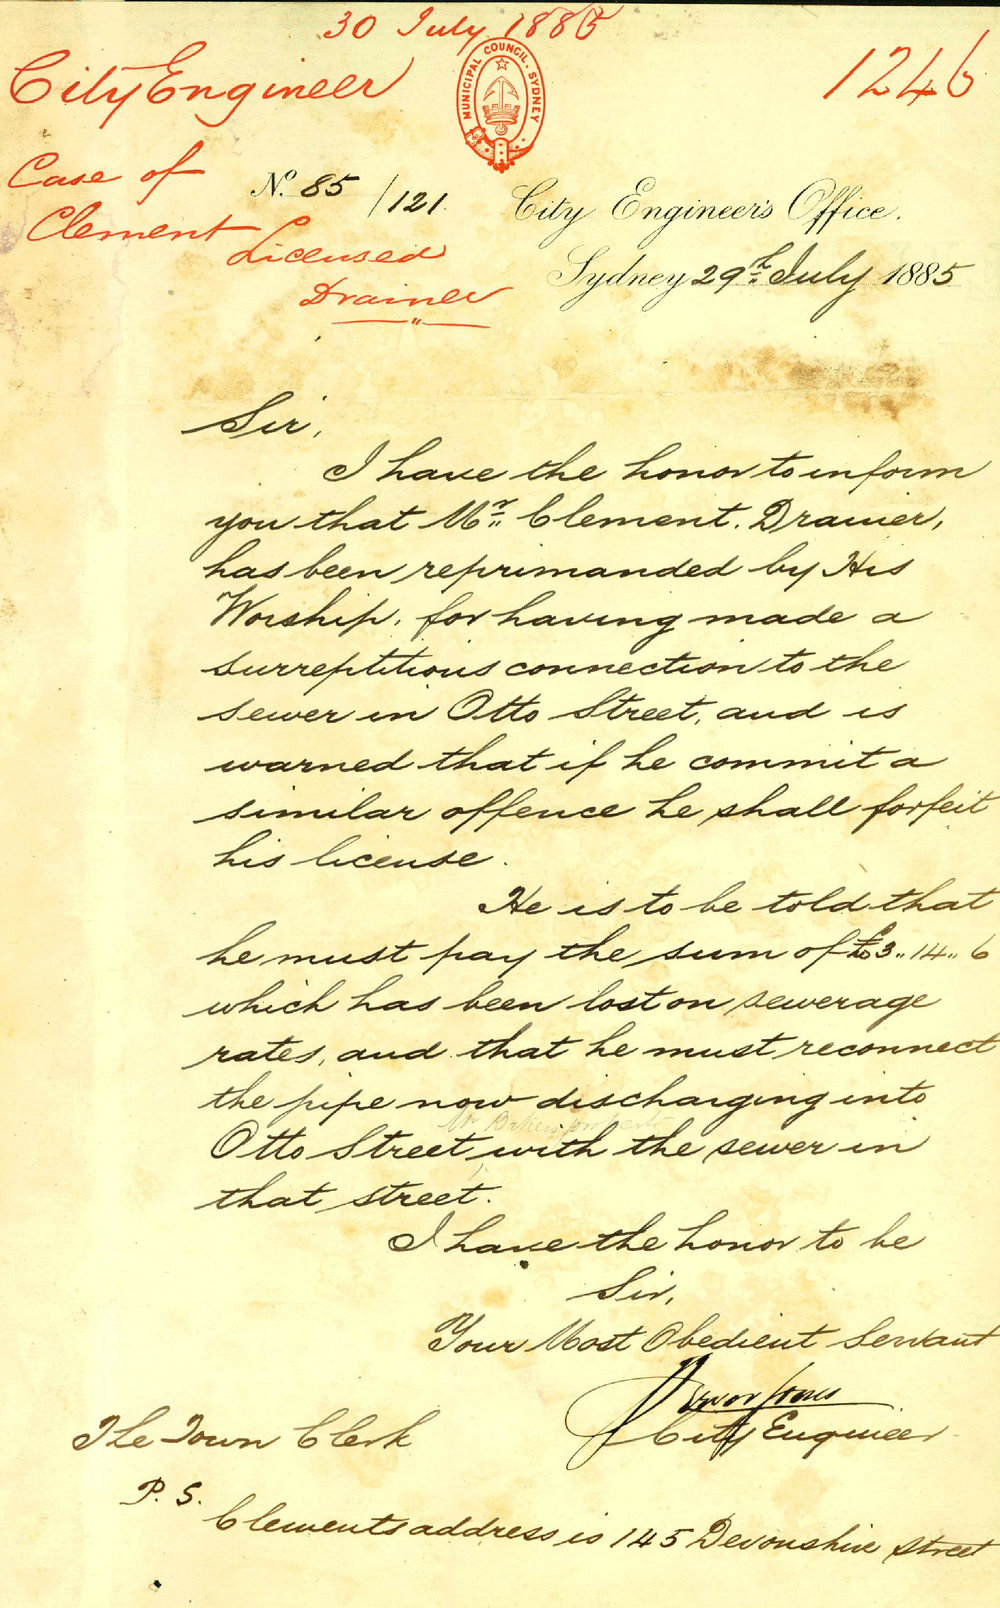 30 July 1885
City Engineer
1246
MUNICIPAL COUNCIL. SYDNEY
Case of
Clement
Licensed
Drainer
No. 85/121.
City Engineer's Office.
Sydney 29th July 1885
Sir,
I have the honor to inform
you that Mr. Clement. Drainer,
has been reprimanded by His
Worship, for having made a
surreptitious connection to the
sewer in Otto Street, and is
warned that if he commit a
similar offence he shall forfeit
his license.
He is to be told that
he must pay the sum of £3..14..6
which has been lost on sewerage
rates, and that he must reconnect
the pipe now discharging into
Otto Street with the sewer in
that street.
I have the honor to be
Sir,
Your Most Obedient Servant
Jones
City Engineer
The Town Clerk
P. S.
Clements address is 145 Devonshire street